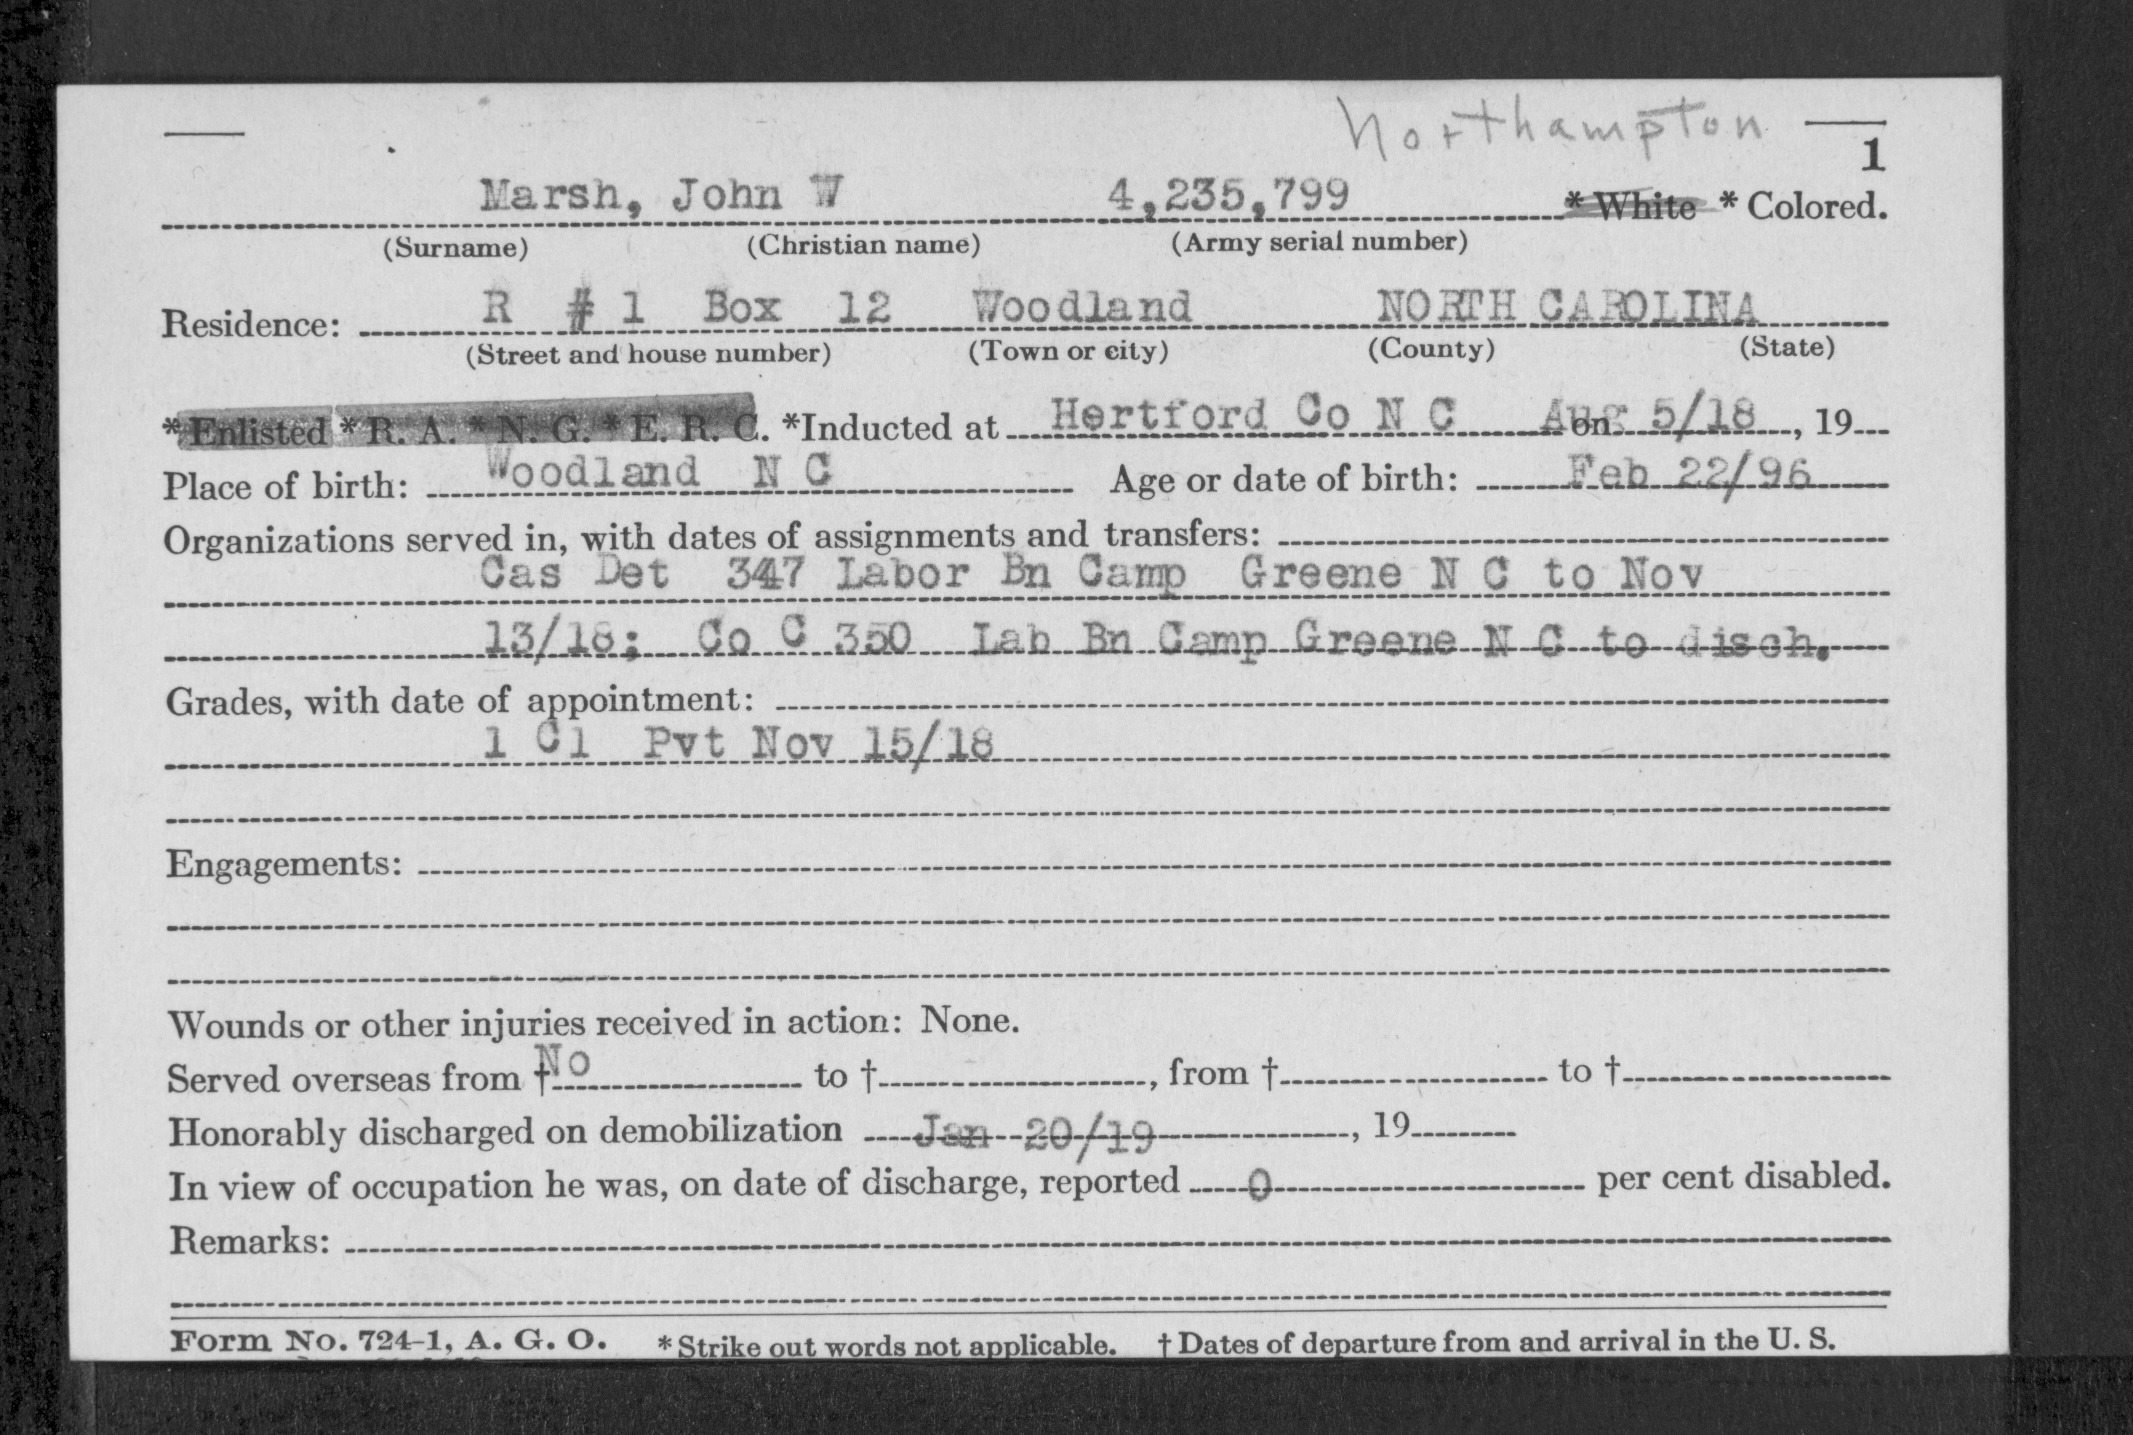 Northampton
1
Marsh, John W 4,235,799 * White * Colored.
(Surname) (Christian name) (Army serial number)
Residence: R # 1 Box 12 Woodland NORTH CAROLINA
(Street and house number) (Town or city) (County) (State)
*Enlisted *R. A. *N. G. *E. R. C. *Inducted at Hertford Co N C Aug on 5/18, 19
Place of birth: Woodland N C Age or date of birth: Feb 22/96
Organizations served in, with dates of assignments and transfers:
Cas Det 347 Labor Bn Camp Greene N C to Nov
13/18; Co C 350 Lab Bn Camp Greene N C to disch.
Grades, with date of appointment:
1 Cl Pvt Nov 15/18
Engagements:
Wounds or other injuries received in action: None.
Served overseas from † No to †, from † to †
Honorably discharged on demobilization Jan 20/19, 19
In view of occupation he was, on date of discharge, reported 0 per cent disabled.
Remarks:
Form No. 724-1, A. G. O. *Strike out words not applicable. †Dates of departure from and arrival in the U. S.